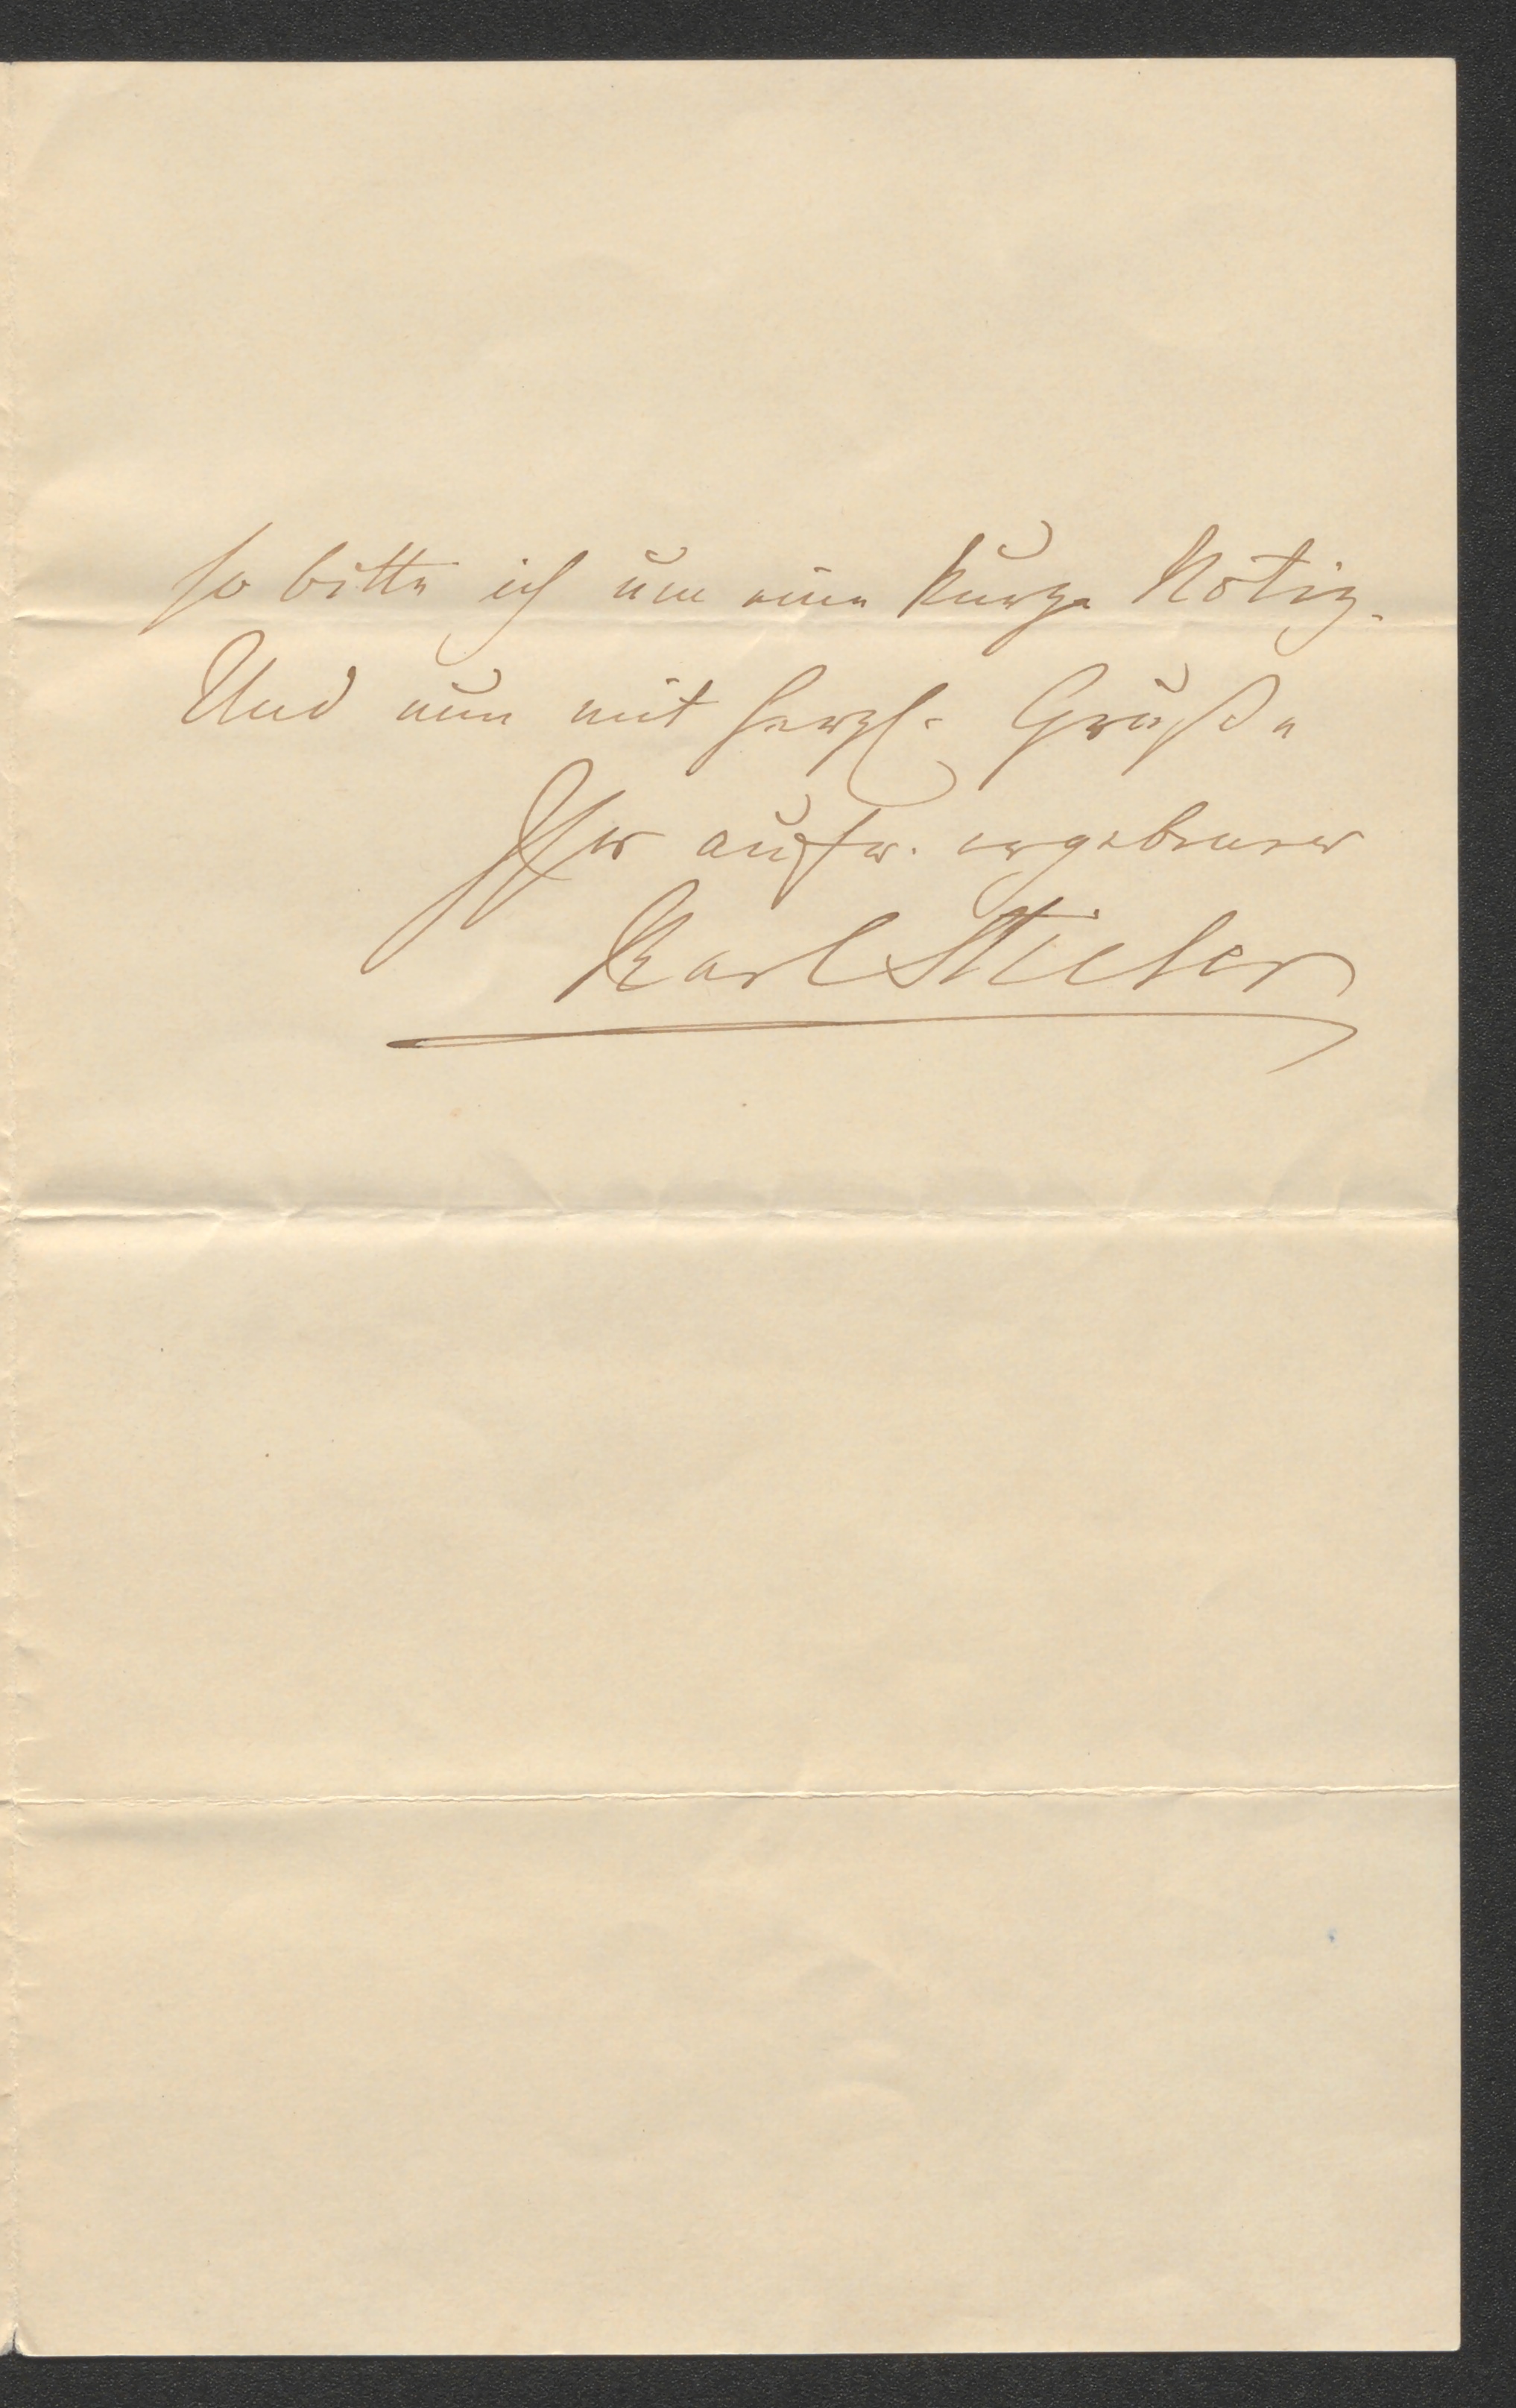 so bitte ich um eine kurze Notiz.
Und nun mit herzl. Gruße
Ihr aufr. ergebener
Karl Stieler